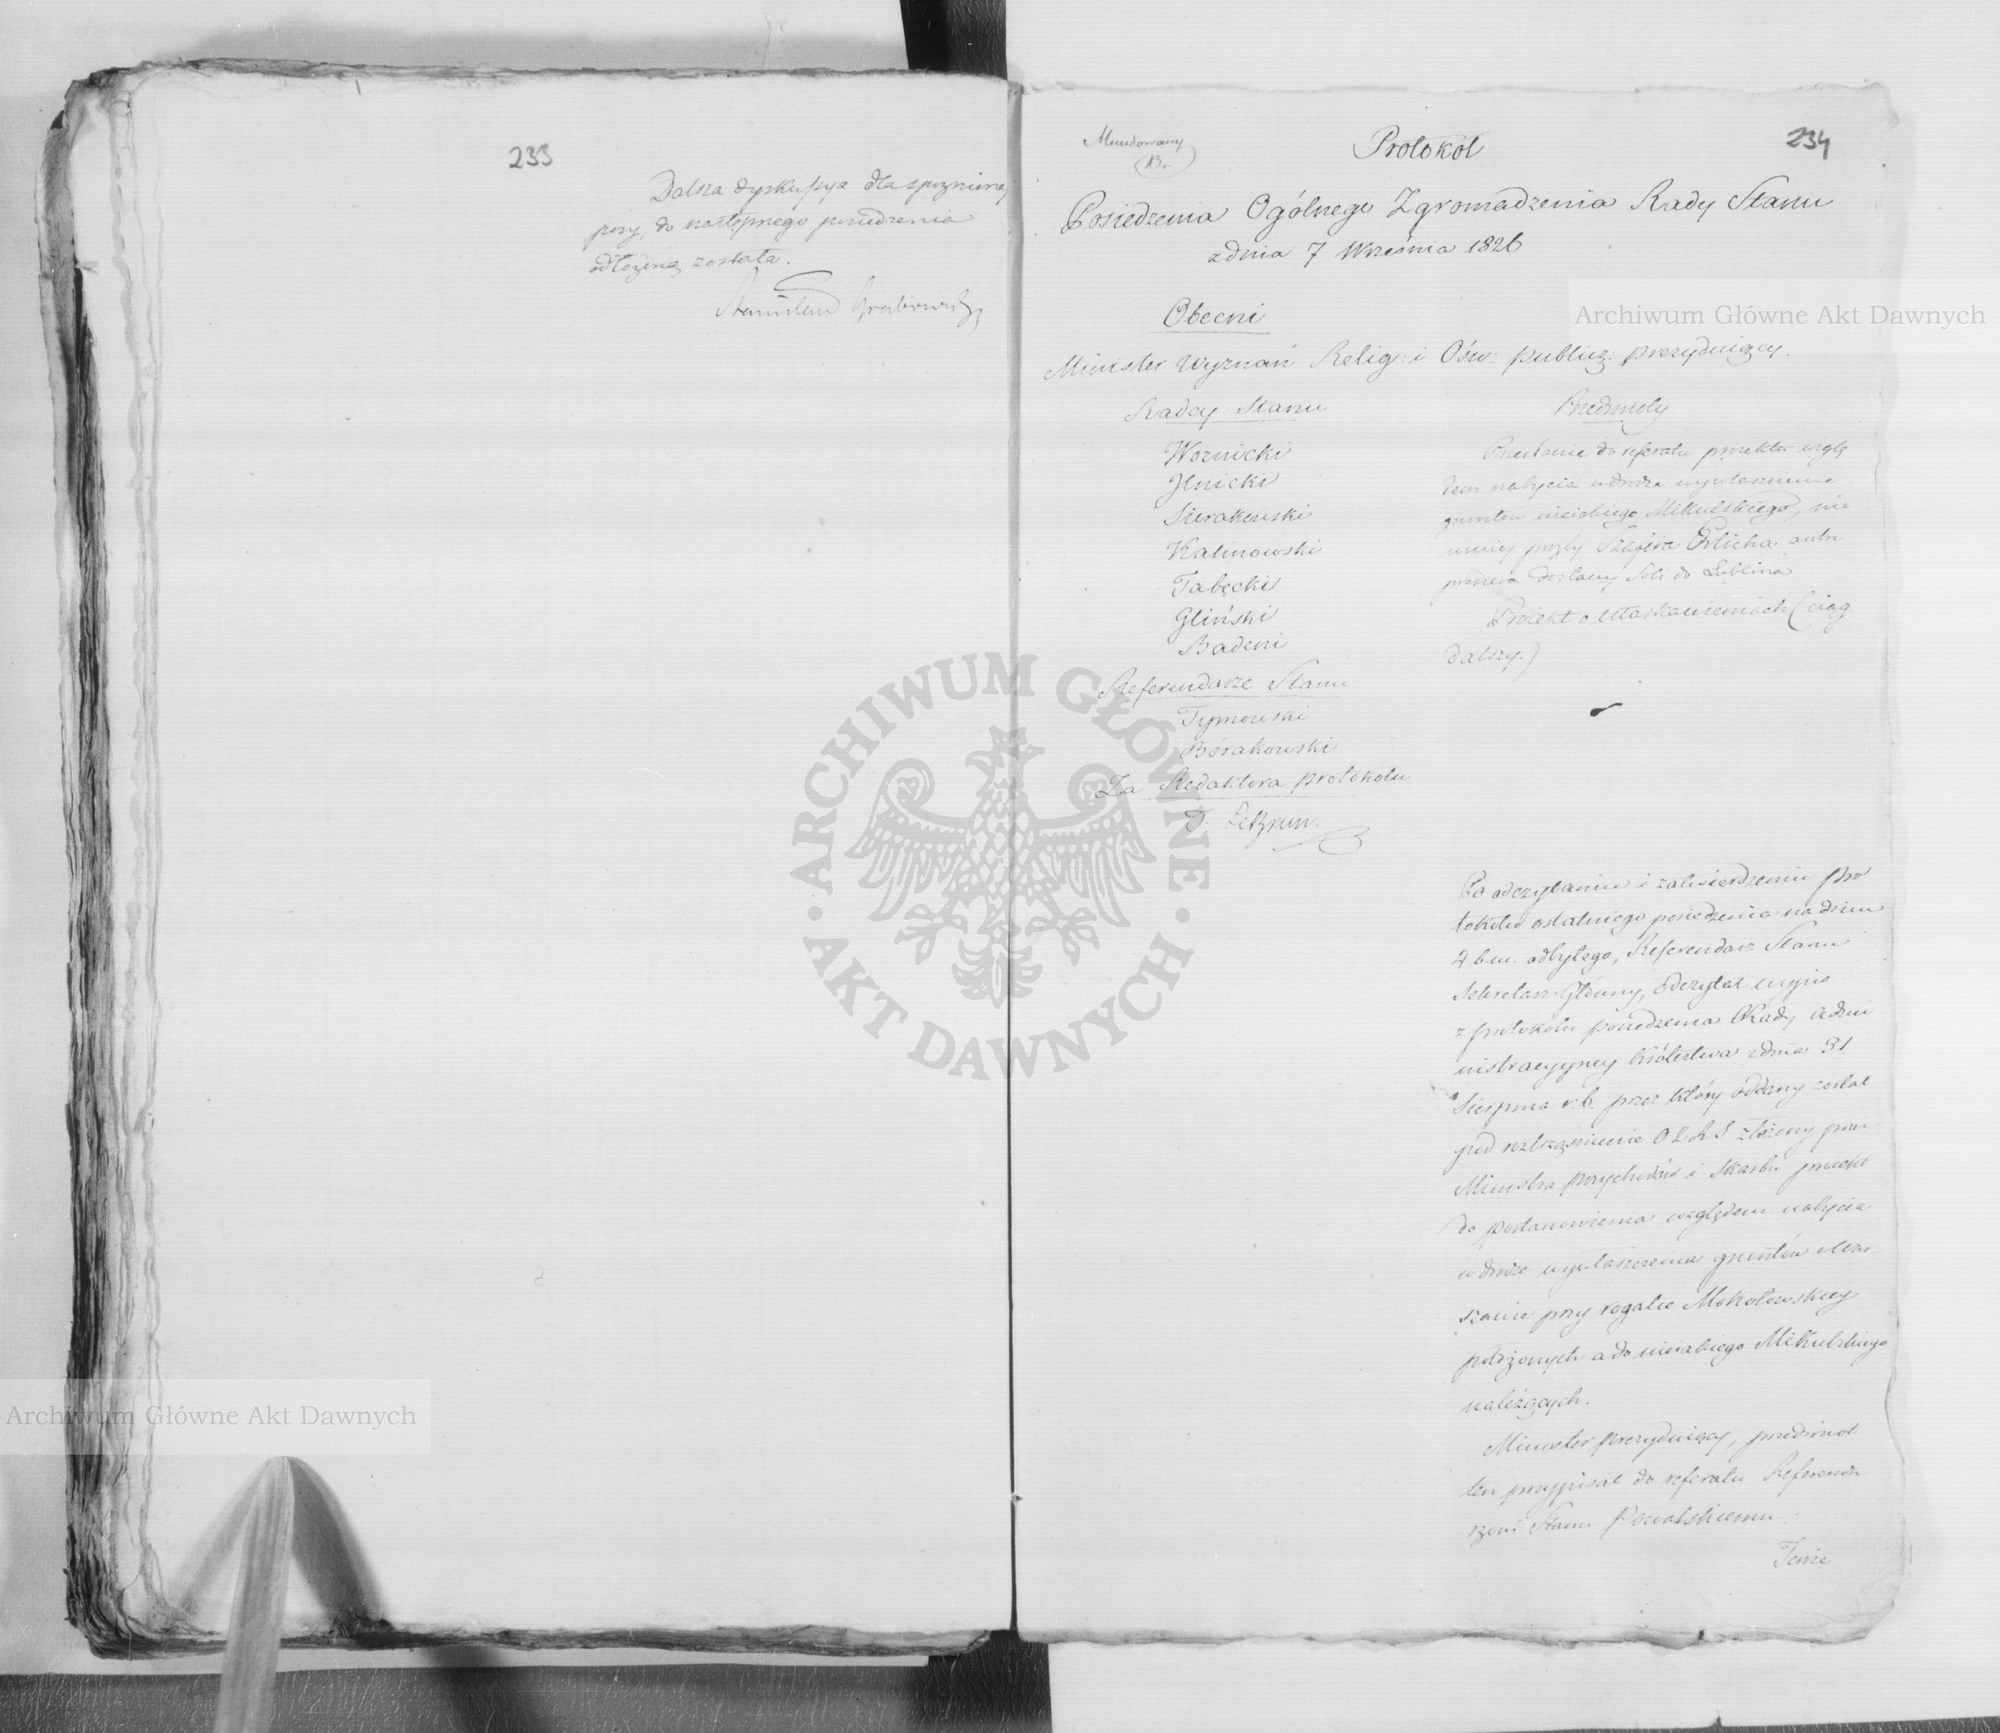 233
Dalsza dyskussya dla spoznioney
pory, do następnego posiedzenia
odłożoną została.
Stanisław Grabowski
Mundowany
Br.
Protokol
234
Posiedzenia Ogólnego Zgromadzenia Rady Stanu
z dnia 7 Września 1826
Obecni
Minister Wyznań Relig: i Ośw: publicz: prezyduiący.
Radcy Stanu
Woznicki
Ilnicki
Sierakowski
Kalinowski
Tabęcki
Gliński
Badeni
Referendarze Stanu
Tymowski
Bórakowski
Za Redaktora protokołu
T. LeBrun.
Przedmioty
Przesłanie do referatu proiektu wzglę
dem nabycia w drodze wywłaszczenia
gruntu nieiakiego Mikulskiego, nie
mniey prośby Szagira Erlicha antre
prenera dostawy Soli do Lublina
Proiekt o ułaskawieniach (ciąg
dalszy.)
Po odczytaniu i zatwierdzeniu pro
tokółu ostatniego posiedzenia na dniu
4 b.m. odbytego, Referendarz Stanu
Sekretarz Główny, odczytał wypis
z protokołu posiedzenia Rady Admi
nistracyyney Królestwa z dnia 31
Sierpnia r.b. przez który oddany został
pod roztrząśnienie O Z R S złożony przez
Ministra przychodów i Skarbu proiekt
do postanowienia względem nabycia
w drodze wywłaszczenia gruntów w War
szawie przy rogatce Mokotowskiey
położonych a do nieiakiego Mikulskiego
należących.
Minister prezyduiący, przedmiot
ten przypisał do referatu Referenda
rzowi Stanu Kowalskiemu.
Tenże
Archiwum Główne Akt Dawnych
Archiwum Główne Akt Dawnych
ARCHIWUM GŁÓWNE
AKT DAWNYCH